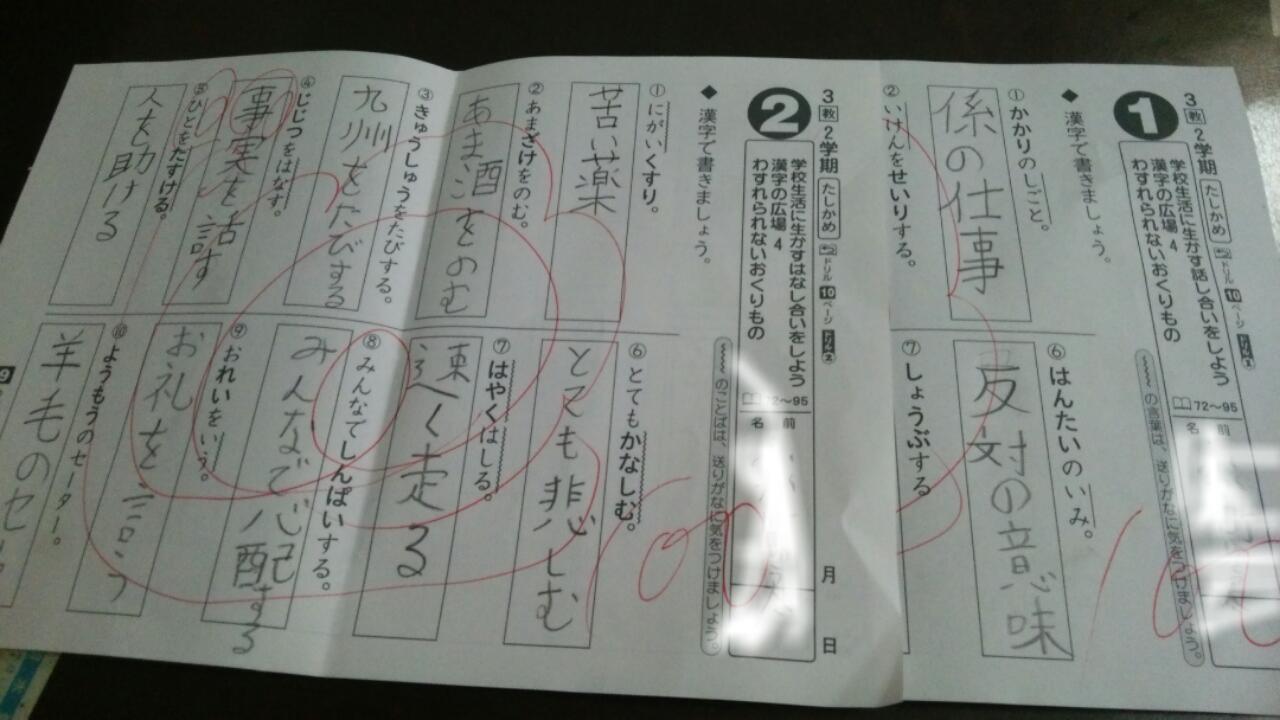 1
3教2学期
たしかめ
ドリル10ページ
学校生活に生かす話し合いをしよう
漢字の広場 4
わすれられないおくりもの
72〜95
名前
◆漢字で書きましょう。
の言葉は、送りがなに気をつけましょう。
①かかりのしごと。
係の仕事
②いけんをせいりする。
⑥はんたいのいみ。
反対の意味
⑦しょうぶする
100
2
3教2学期
たしかめ
ドリル10ページ
学校生活に生かすはなし合いをしよう
漢字の広場 4
わすれられないおくりもの
72〜95
名前
月 日
◆漢字で書きましょう。
のことばは、送りがなに気をつけましょう。
①にがいくすり。
苦い薬
②あまざけをのむ。
あま酒をのむ
③きゅうしゅうをたびする。
九州をたびする
④じじつをはなす。
事実を話す
⑤ひとをたすける。
人を助ける
⑥とてもかなしむ。
とても悲しむ
⑦はやくはしる。
速く走る
⑧みんなでしんぱいする。
みんなで心配する
⑨おれいをいう。
お礼を言う
⑩ようもうのセーター。
羊毛のセ
100
9